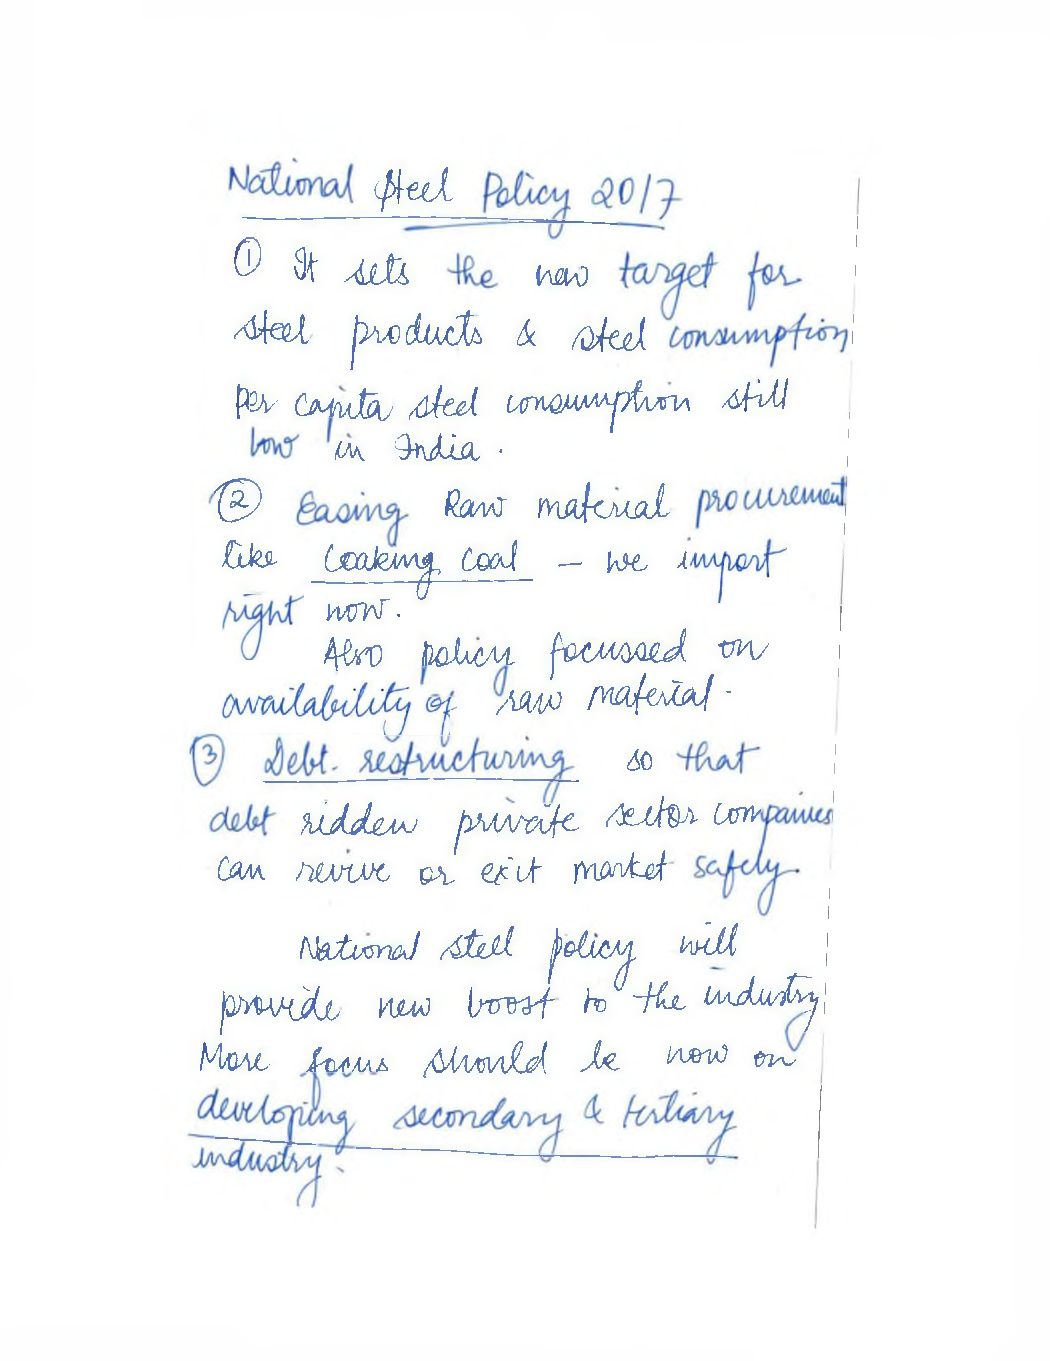 National Steel Policy 2017
① It sets the new target for
steel products & steel consumption
Per capita steel consumption still
low in India.
② Easing Raw material procurement
like Coaking Coal – we import
right now.
Also policy focussed on
availability of raw material.
③ Debt restructuring so that
debt ridden private sector companies
can revive or exit market safely.
National steel policy will
provide new boost to the industry
More focus should be now on
developing secondary & tertiary
industry.